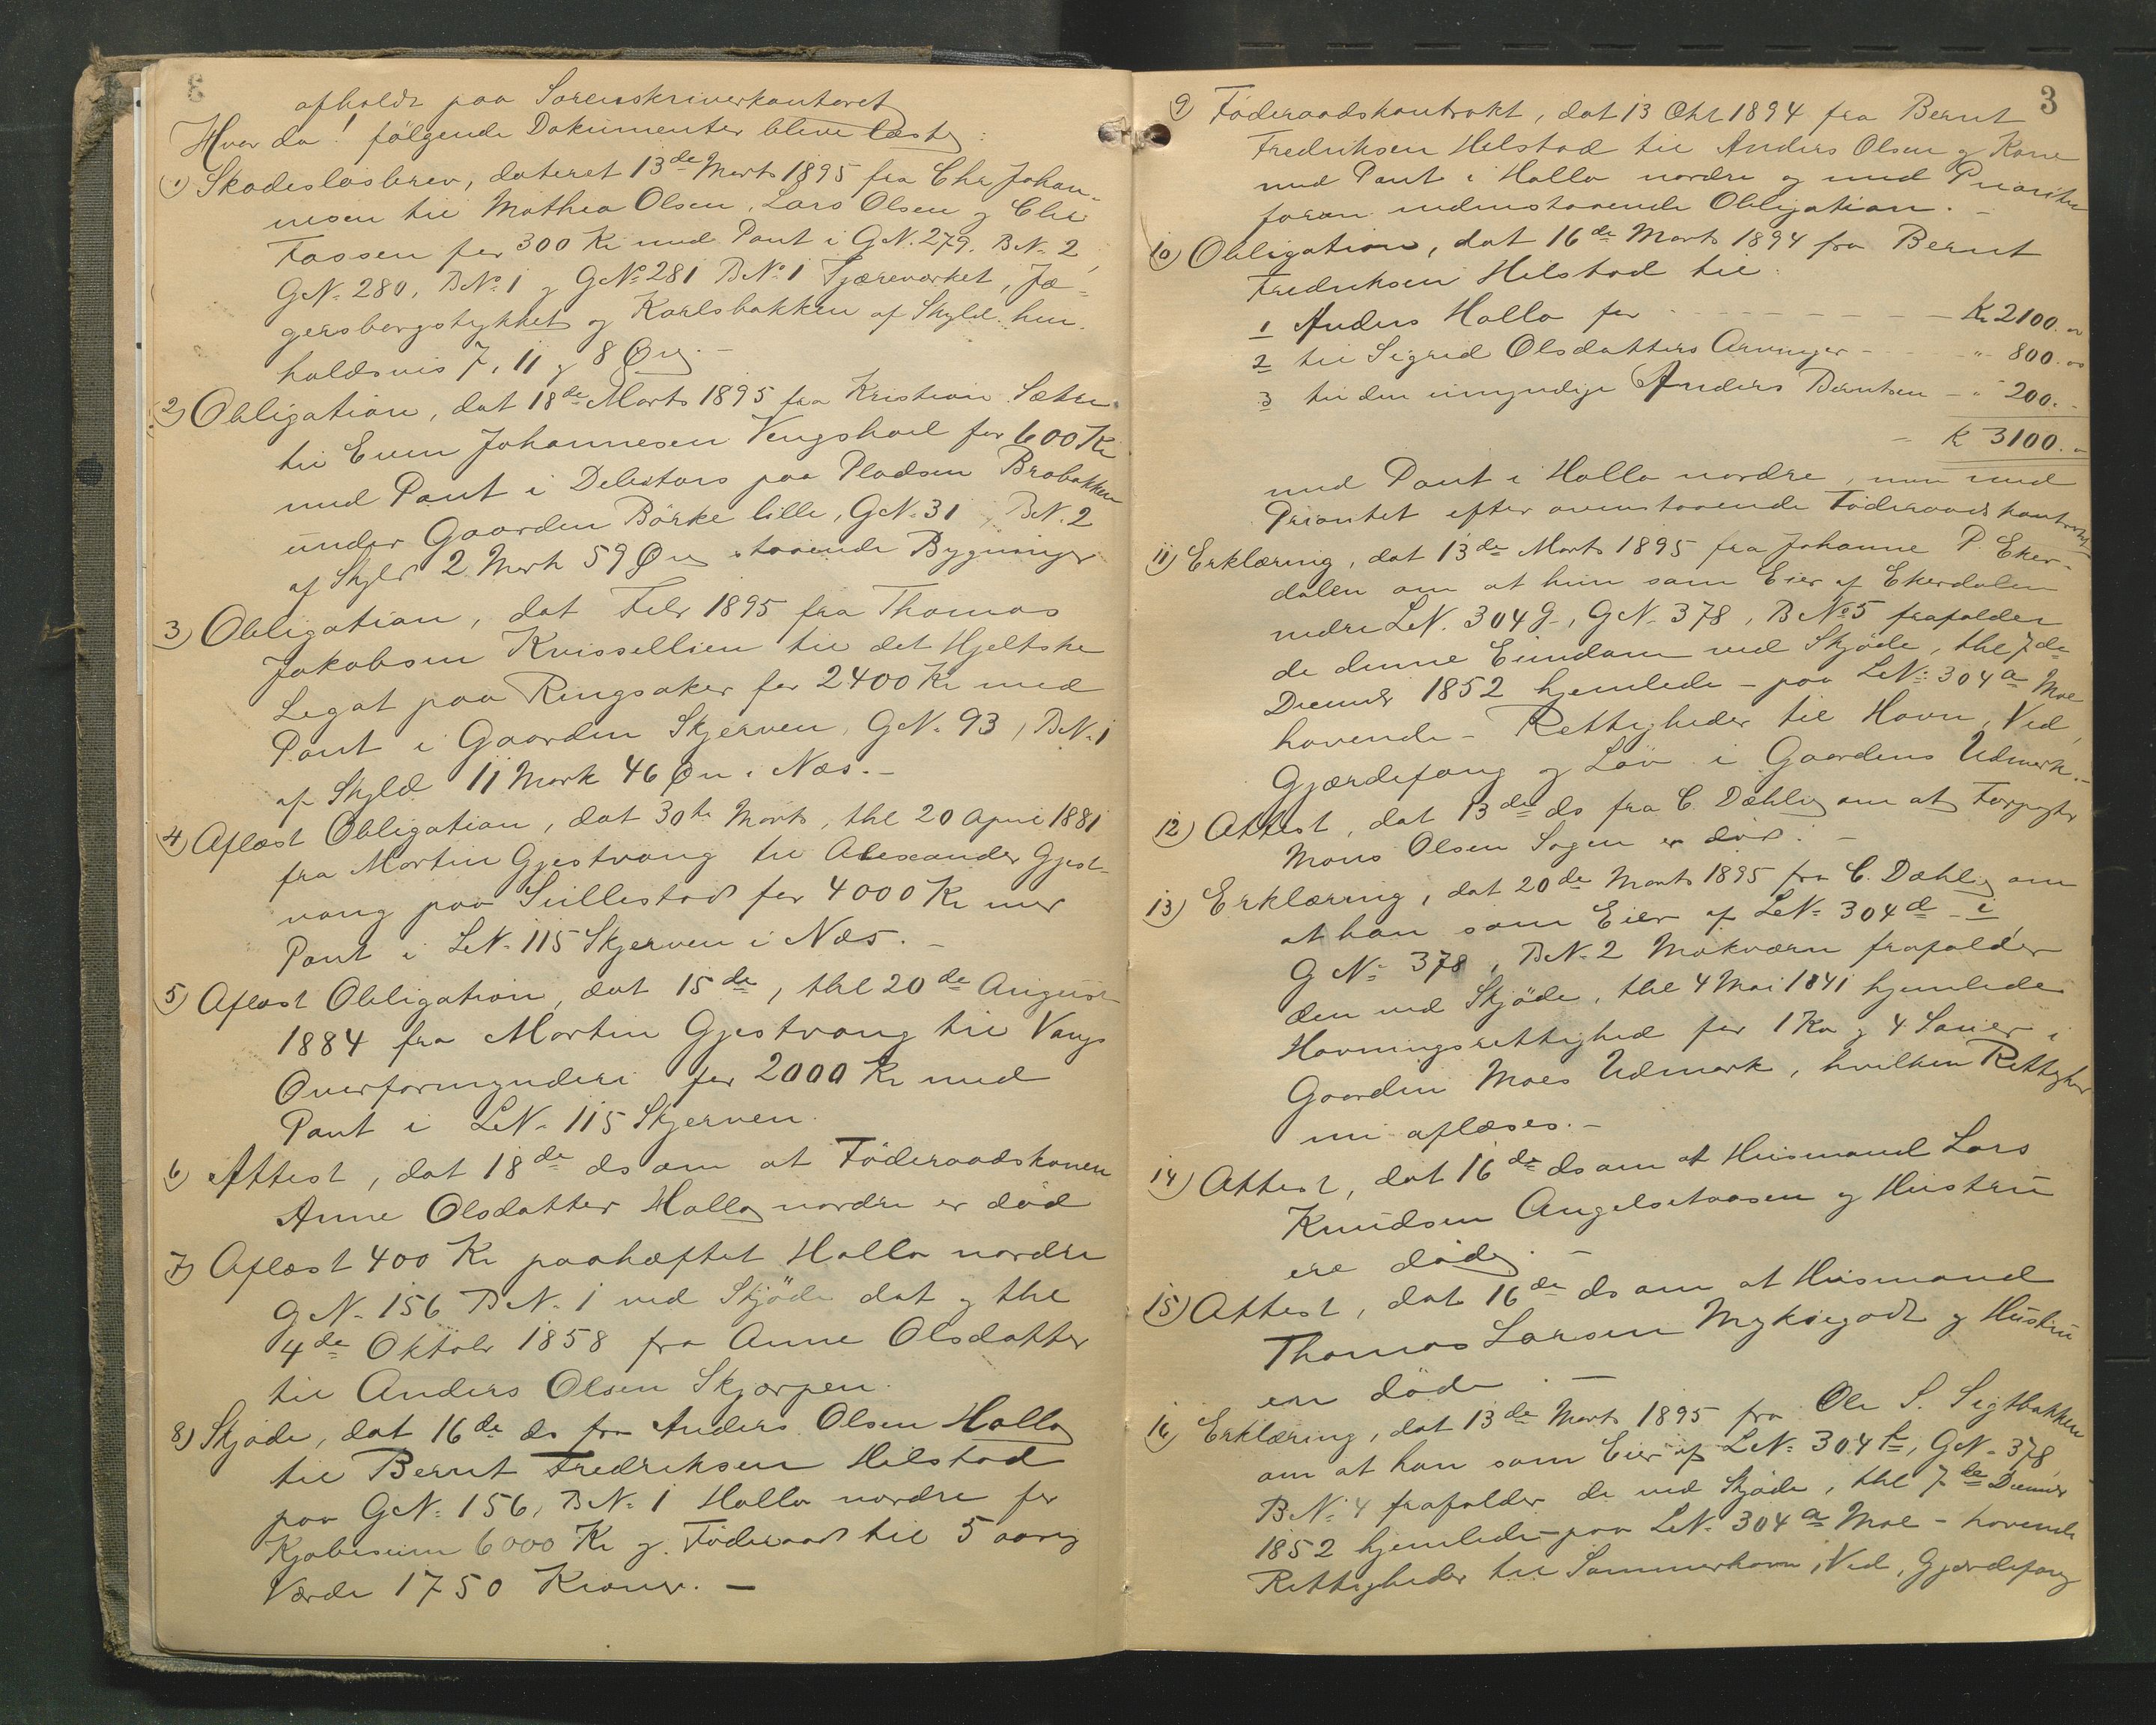 afholdt paa Sorenskriverkontoret
Hvor da! følgende Dokumenter bleve læste:
1) Skadesløsbrev, dateret 13de Marts 1895 fra Chr Johan-
nesen til Mathea Olsen, Lars Olsen og Chr
Fossen for 300 Kr med Pant i GN. 279. BN. 2,
GN. 280, BNo 1 og GNo 281 BNo 1 Tjæreværket, Jæ-
gersbergstykket og Karlsbakken af Skyld hen-
holdsvis 7, 11 og 8 Øre. –
2) Obligation, dat 18de Marts 1895 fra Kristian Sætre
til Even Johannesen Vengshoel for 600 Kr
med Pant i Debitors paa Pladsen Brobakken
under Gaarden Børke lille, GN. 31, BN. 2
af Skyld 2 Mark 59 Øre staaende Bygninger
3) Obligation, dat Febr 1895 fra Thomas
Jakobsen Kvissellien til det Hjeltske
Legat paa Ringsaker for 2400 Kr med
Pant i Gaarden Skjerven, GN. 93, BN. 1
af Skyld 11 Mark 46 Øre i Næs. –
4) Aflæst Obligation, dat 30te Marts, thl 20 April 1881
fra Martin Gjestvang til Alexander Gjest-
vang paa Sillestad for 4000 Kr mod
Pant i LN. 115 Skjerven i Næs. –
5) Aflæst Obligation, dat 15de, thl 20de August
1884 fra Martin Gjestvang til Vangs
Overformynderi for 2000 Kr med
Pant i LN. 115 Skjerven.
6) Attest, dat 18de ds om at Føderaadskonen
Anne Olsdatter Halla nordre er død
7) Aflæst 400 Kr paaheftet Halla nordre
GN. 156 BN. 1 ved Skjøde dat og thl
4de Oktobr 1858 fra Anne Olsdatter
til Anders Olsen Skjærpen.
8) Skjøde, dat 16de ds fra Anders Olsen Halla
til Bernt Fredriksen Hilstad
paa GN. 156, BN. 1 Halla nordre for
Kjøbesum 6000 Kr og Føderaad til 5 aarig
Værdi 1750 Kroner. –
3
9) Føderaadskontrakt, dat 13 Oktr 1894 fra Bernt
Fredriksen Hilstad til Anders Olsen og Kone
med Pant i Halla nordre og med Prioritet
foran nedenstaaende Obligation. –
10) Obligation, dat 16de Marts 1894 fra Bernt
Fredriksen Hilstad til:
1 Anders Halla for – – – – – – Kr 2100. „
2 til Sigrid Olsdatters Arvinger – – – „ 800. „
3 til den umyndige Anders Berntsen – „ 200. –
– K 3100. „
med Pant i Halla nordre, men med
Prioritet efter ovenstaaende Føderaadskontrakt
11) Erklæring, dat 13de Marts 1895 fra Johanne P. Eker-
dalen om at hun som Eier af Ekerdalen
nedre LN. 304 g, GN. 378, BNo 5 frafalder
de denne Eiendom ved Skjøde, thl 7de
Decembr 1852 hjemlede – paa LN. 304 a Moe
havende – Rettigheder til Havn, Ved,
Gjærdefang og Løv i Gaardens Udmark. –
12) Attest, dat 13de ds fra C. Dæhli om at Forpagter
Mons Olsen Sogen er død. –
13) Erklæring, dat 20de Marts 1895 fra C. Dæhli om
at han som Eier af LN. 304 d – i
GN. 378, BN. 2 Mokværn frafalder
den ved Skjøde, thl 4 Mai 1841 hjemlede
Havningsrettighed for 1 Ko og 4 Sauer i
Gaarden Moes Udmark, hvilken Rettighed
nu aflæses. –
14) Attest, dat 16de ds om at Husmand Lars
Knudsen Angelsetaasen og Hustru
ere døde. –
15) Attest, dat 16de ds om at Husmand
Thomas Larsen og Hustru
ere døde. –
16) Erklæring, dat 13de Marts 1895 fra Ole S. Sigtbakken
om at han som Eier af LN. 304 f, GN. 378,
BN. 4 frafalder de ved Skjøde, thl 7de Decembr
1852 hjemlede – paa LN. 304 a Moe – havende
Rettigheder til Sommerhavn, Ved, Gjærdefang